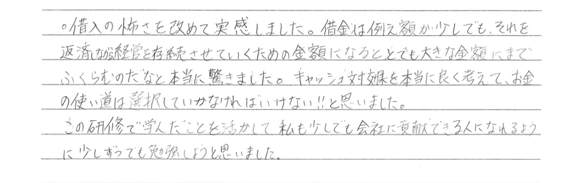 ○借入の怖さを改めて実感しました。借金は例え額が少しでも、それを
返済しながら経営を存続させていくための金額になるととても大きな金額にまで
ふくらむのだなと本当に驚きました。キャッシュ対効果を本当に良く考えて、お金
の使い道は選択していかなければいけない!!と思いました。
この研修で学んだことを活かして私も少しでも会社に貢献できる人になれるよう
に少しずつでも勉強しようと思いました。